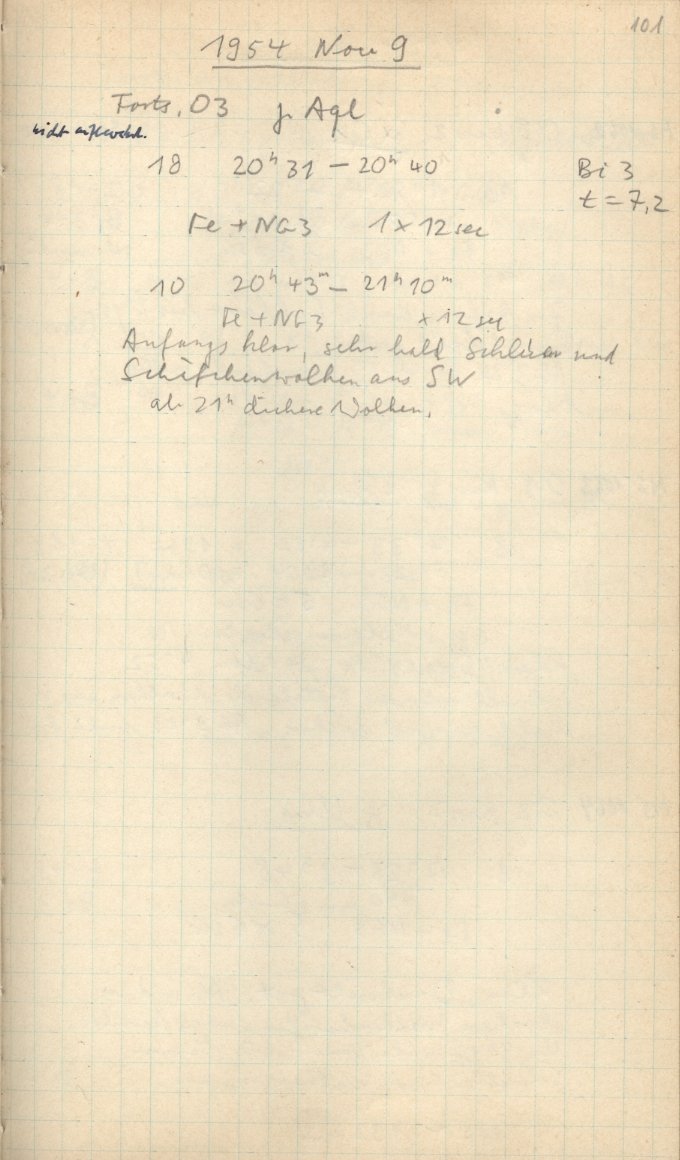 101
1954 Nov 9
Forts. O3 γ Aql
nicht aufbewahrt.
18 20ʰ 31 – 20ʰ 40 Bi 3
t = 7,2
Fe + NG3 1 x 12 sec
10 20ʰ 43ᵐ – 21ʰ 10ᵐ
Fe + NG3 x 12 sec
Anfangs klar, sehr bald Schlieren und
Schäfchenwolken aus SW
ab 21ʰ dichere Wolken.